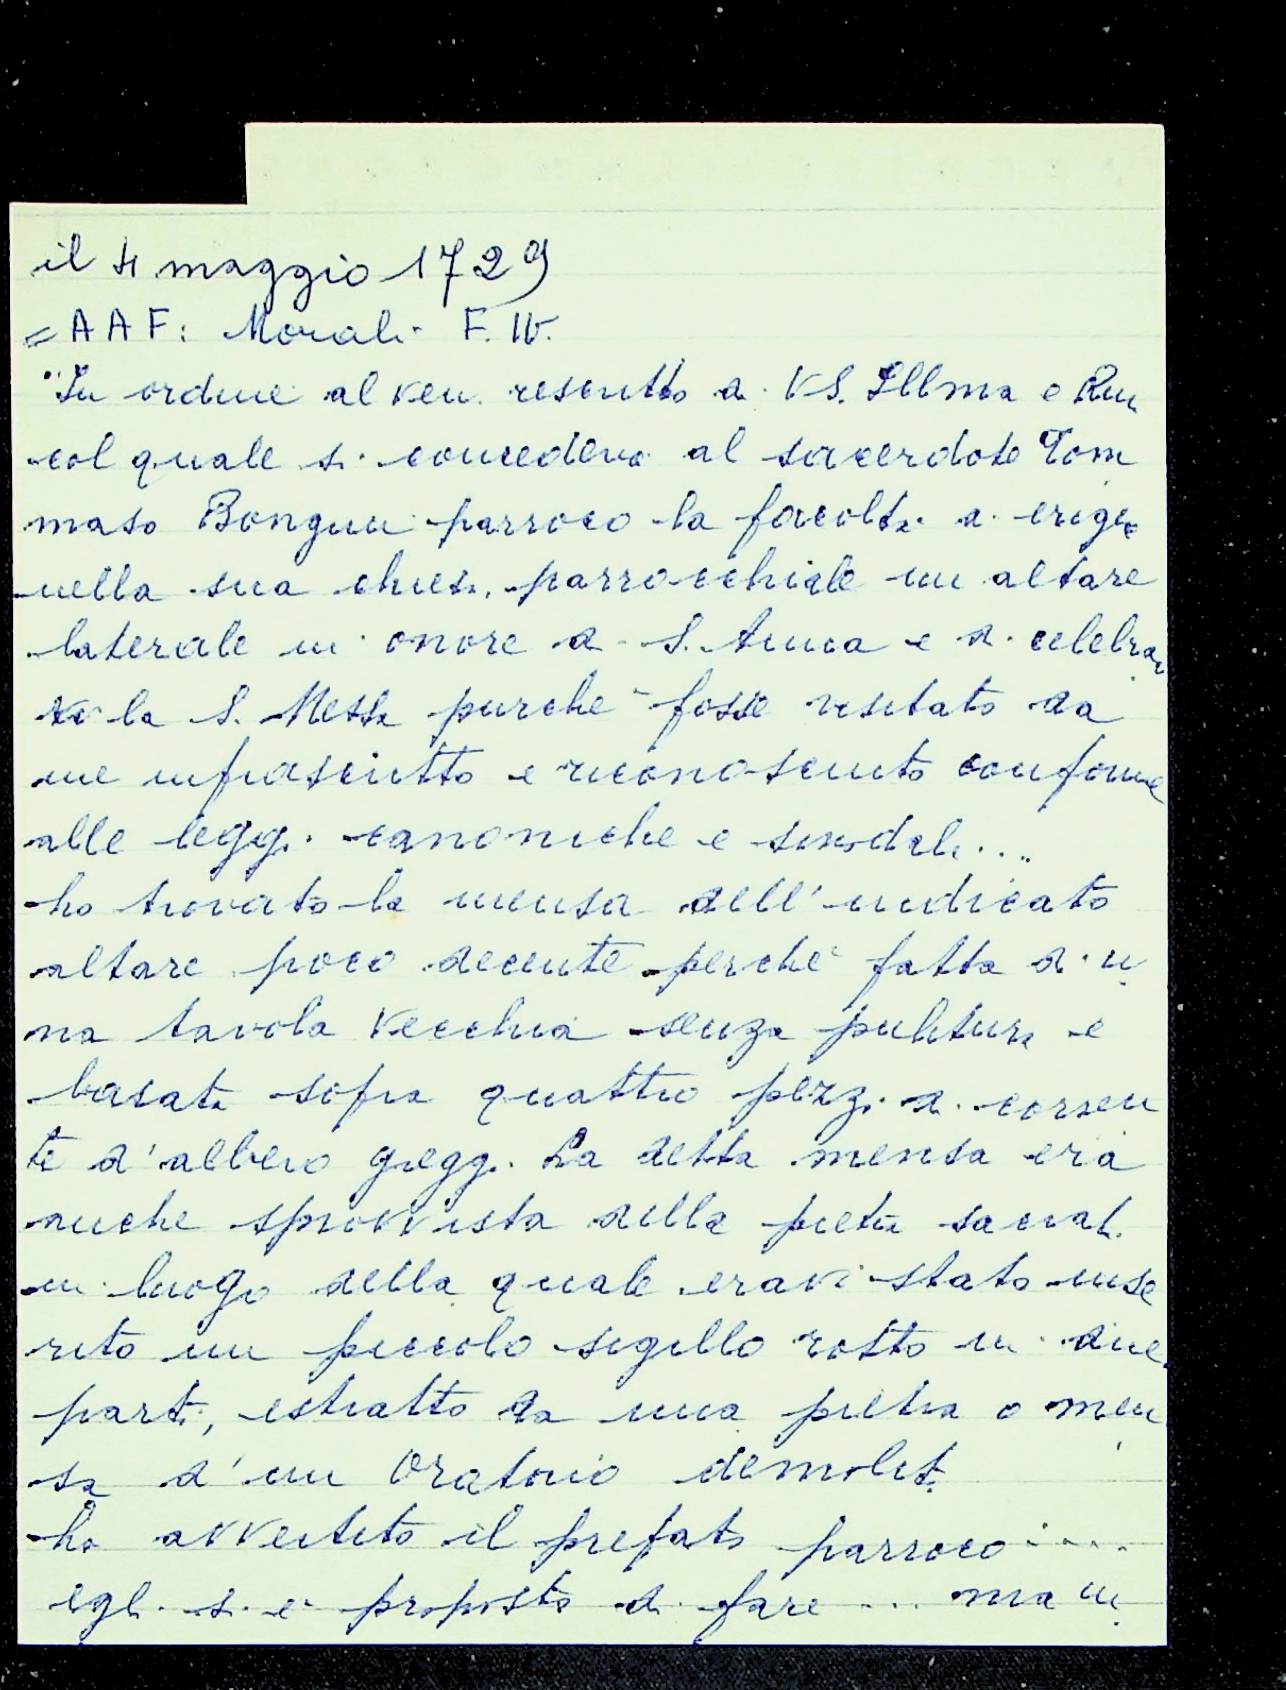 il 4 maggio 1729
= AAF: Morali F. IV.
"In ordine al ven. rescritto di VS. Illma e Rm
col quale si concedeva al sacerdote Tom
maso Bongini parroco la facoltà di erige
nella sua chiesa parrocchiale un altare
laterale in onore di S. Anna e di celebra
vi la S. Messa purchè fosse visitato da
me infrascritto e riconosciuto conforme
alle leggi canoniche e sinodali....
ho trovato la mensa dell'indicato
altare poco decente perchè fatta di u
na tavola vecchia senza pulitura e
basata sopra quattro pezzi di corren
ti d'albero greggi. La detta mensa era
anche sprovvista della pietra sacrale
in luogo della quale eravi stato inse
rito un piccolo sigillo rotto in due
parti, estratto da una pietra o men
sa d'un Oratorio demolito
ho avvertito il prefato parroco .....
egli si è proposto di fare ... ma in